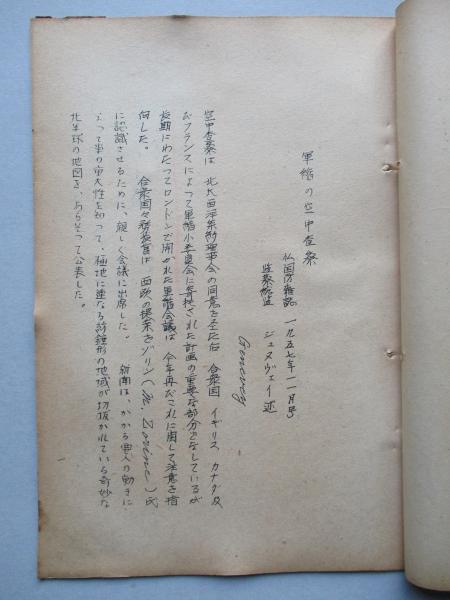 軍縮の空中査察
仏国防雑誌 一九五七年一一月号
監察総監 ジュヌヴェイ述
Genevey
空中査察は 北大西洋条約理事会の同意をえたる 合衆国 イギリス カナダ及
びフランスによって軍縮小委員会に寄託された計画の重要な部分をなしているが
長期にわたってロンドンで開かれた軍縮会議は 今年再びこれに関して注意を指
向した。 合衆国々務長官は 西欧の提案をゾリン(M. Zorine)氏
に認識させるために、親しく会議に出席した。 新聞は、かかる要人の動きに
よって事の重大性を知って、極地に連なる紡錘形の地域が切抜かれている奇妙な
北半球の地図を、あらそって公表した。